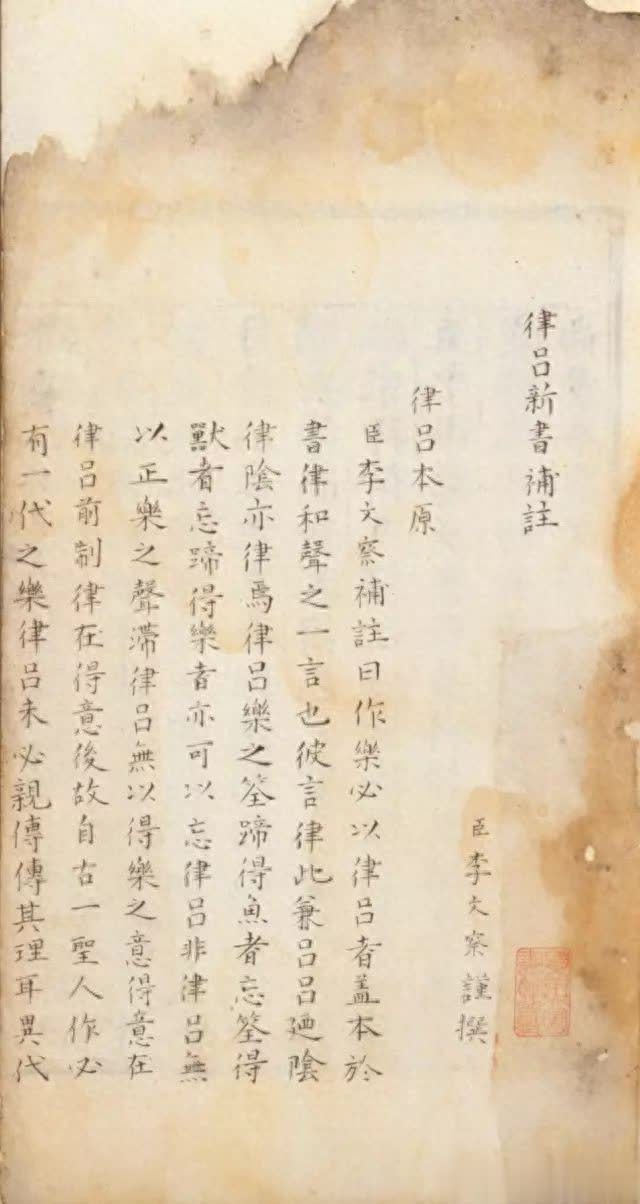 律呂新書補註
臣李文察謹撰
律呂本原
臣李文察補註曰作樂必以律呂者蓋本於
書律和聲之一言也彼言律此兼呂呂廼陰
律陰亦律焉律呂樂之筌蹄得魚者忘筌得
獸者忘蹄得樂者亦可以忘律呂非律呂無
以正樂之聲滯律呂無以得樂之意得意在
律呂前制律在得意後故自古一聖人作必
有一代之樂律呂未必親傳傳其理耳異代